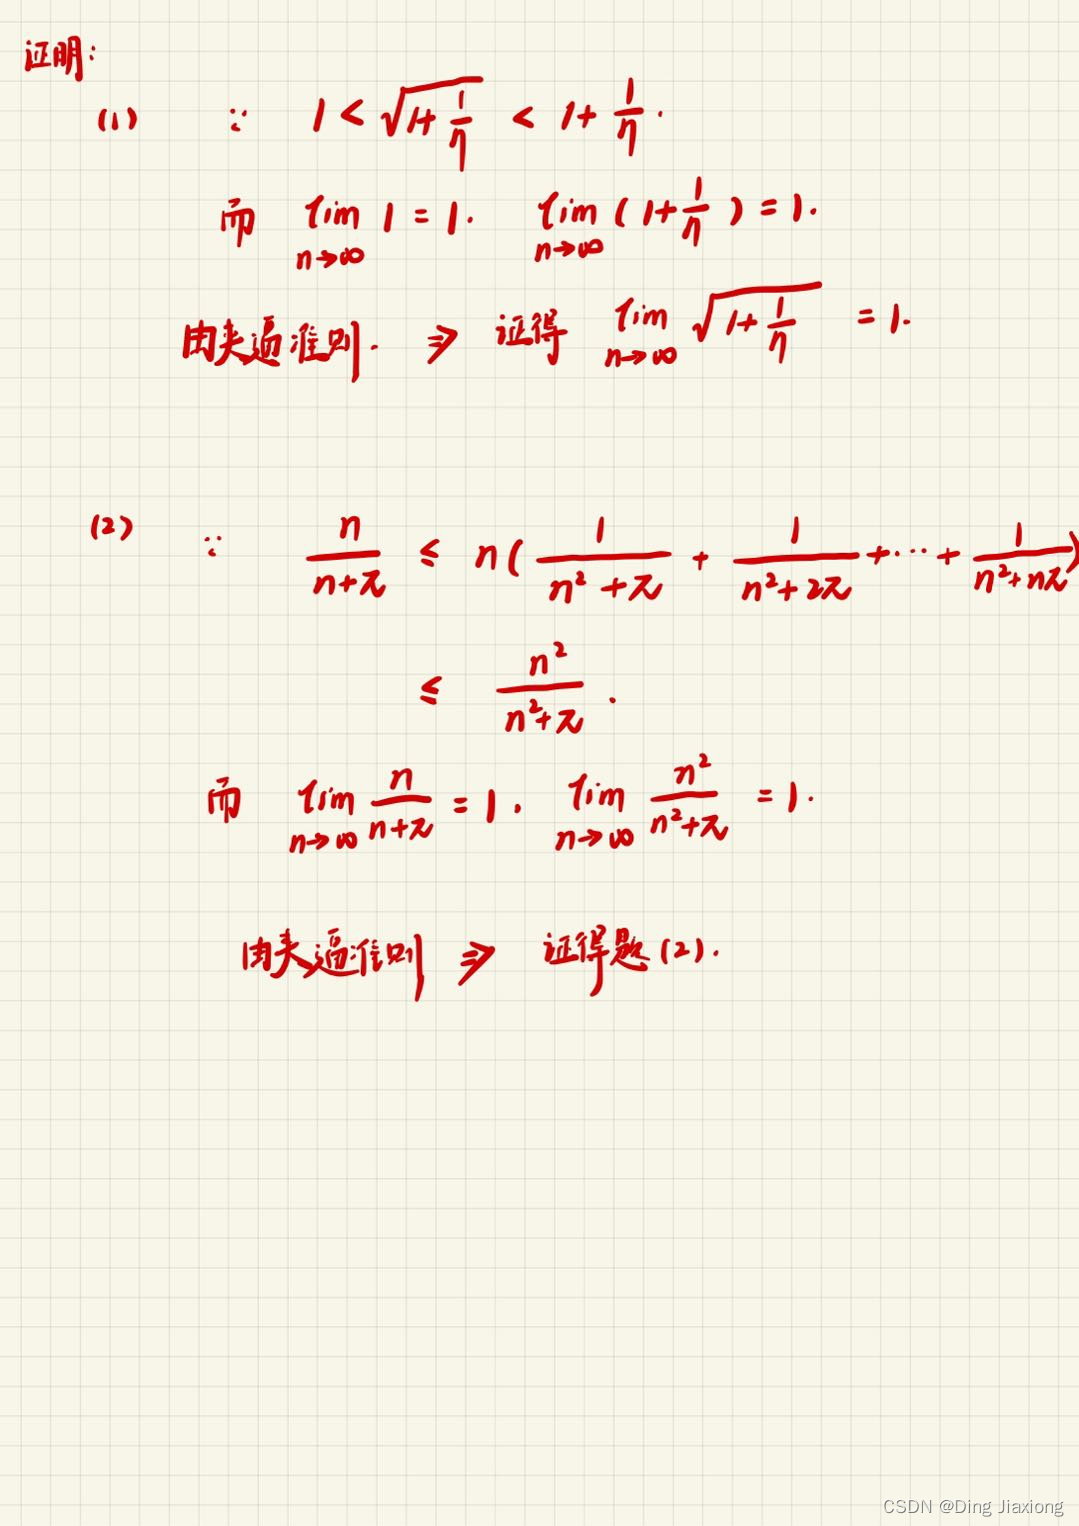 证明:
(1) ∵ 1 < √(1+1/n) < 1+1/n.
而 lim_{n→∞} 1 = 1. lim_{n→∞} (1+1/n) = 1.
由夹逼准则. ⇒ 证得 lim_{n→∞} √(1+1/n) = 1.
(2) ∵ n/(n+π) ≤ n(1/(n²+π) + 1/(n²+2π) +…+ 1/(n²+nπ))
≤ n²/(n²+π).
而 lim_{n→∞} n/(n+π) = 1. lim_{n→∞} n²/(n²+π) = 1.
由夹逼准则 ⇒ 证得题(2).
CSDN @Ding Jiaxiong